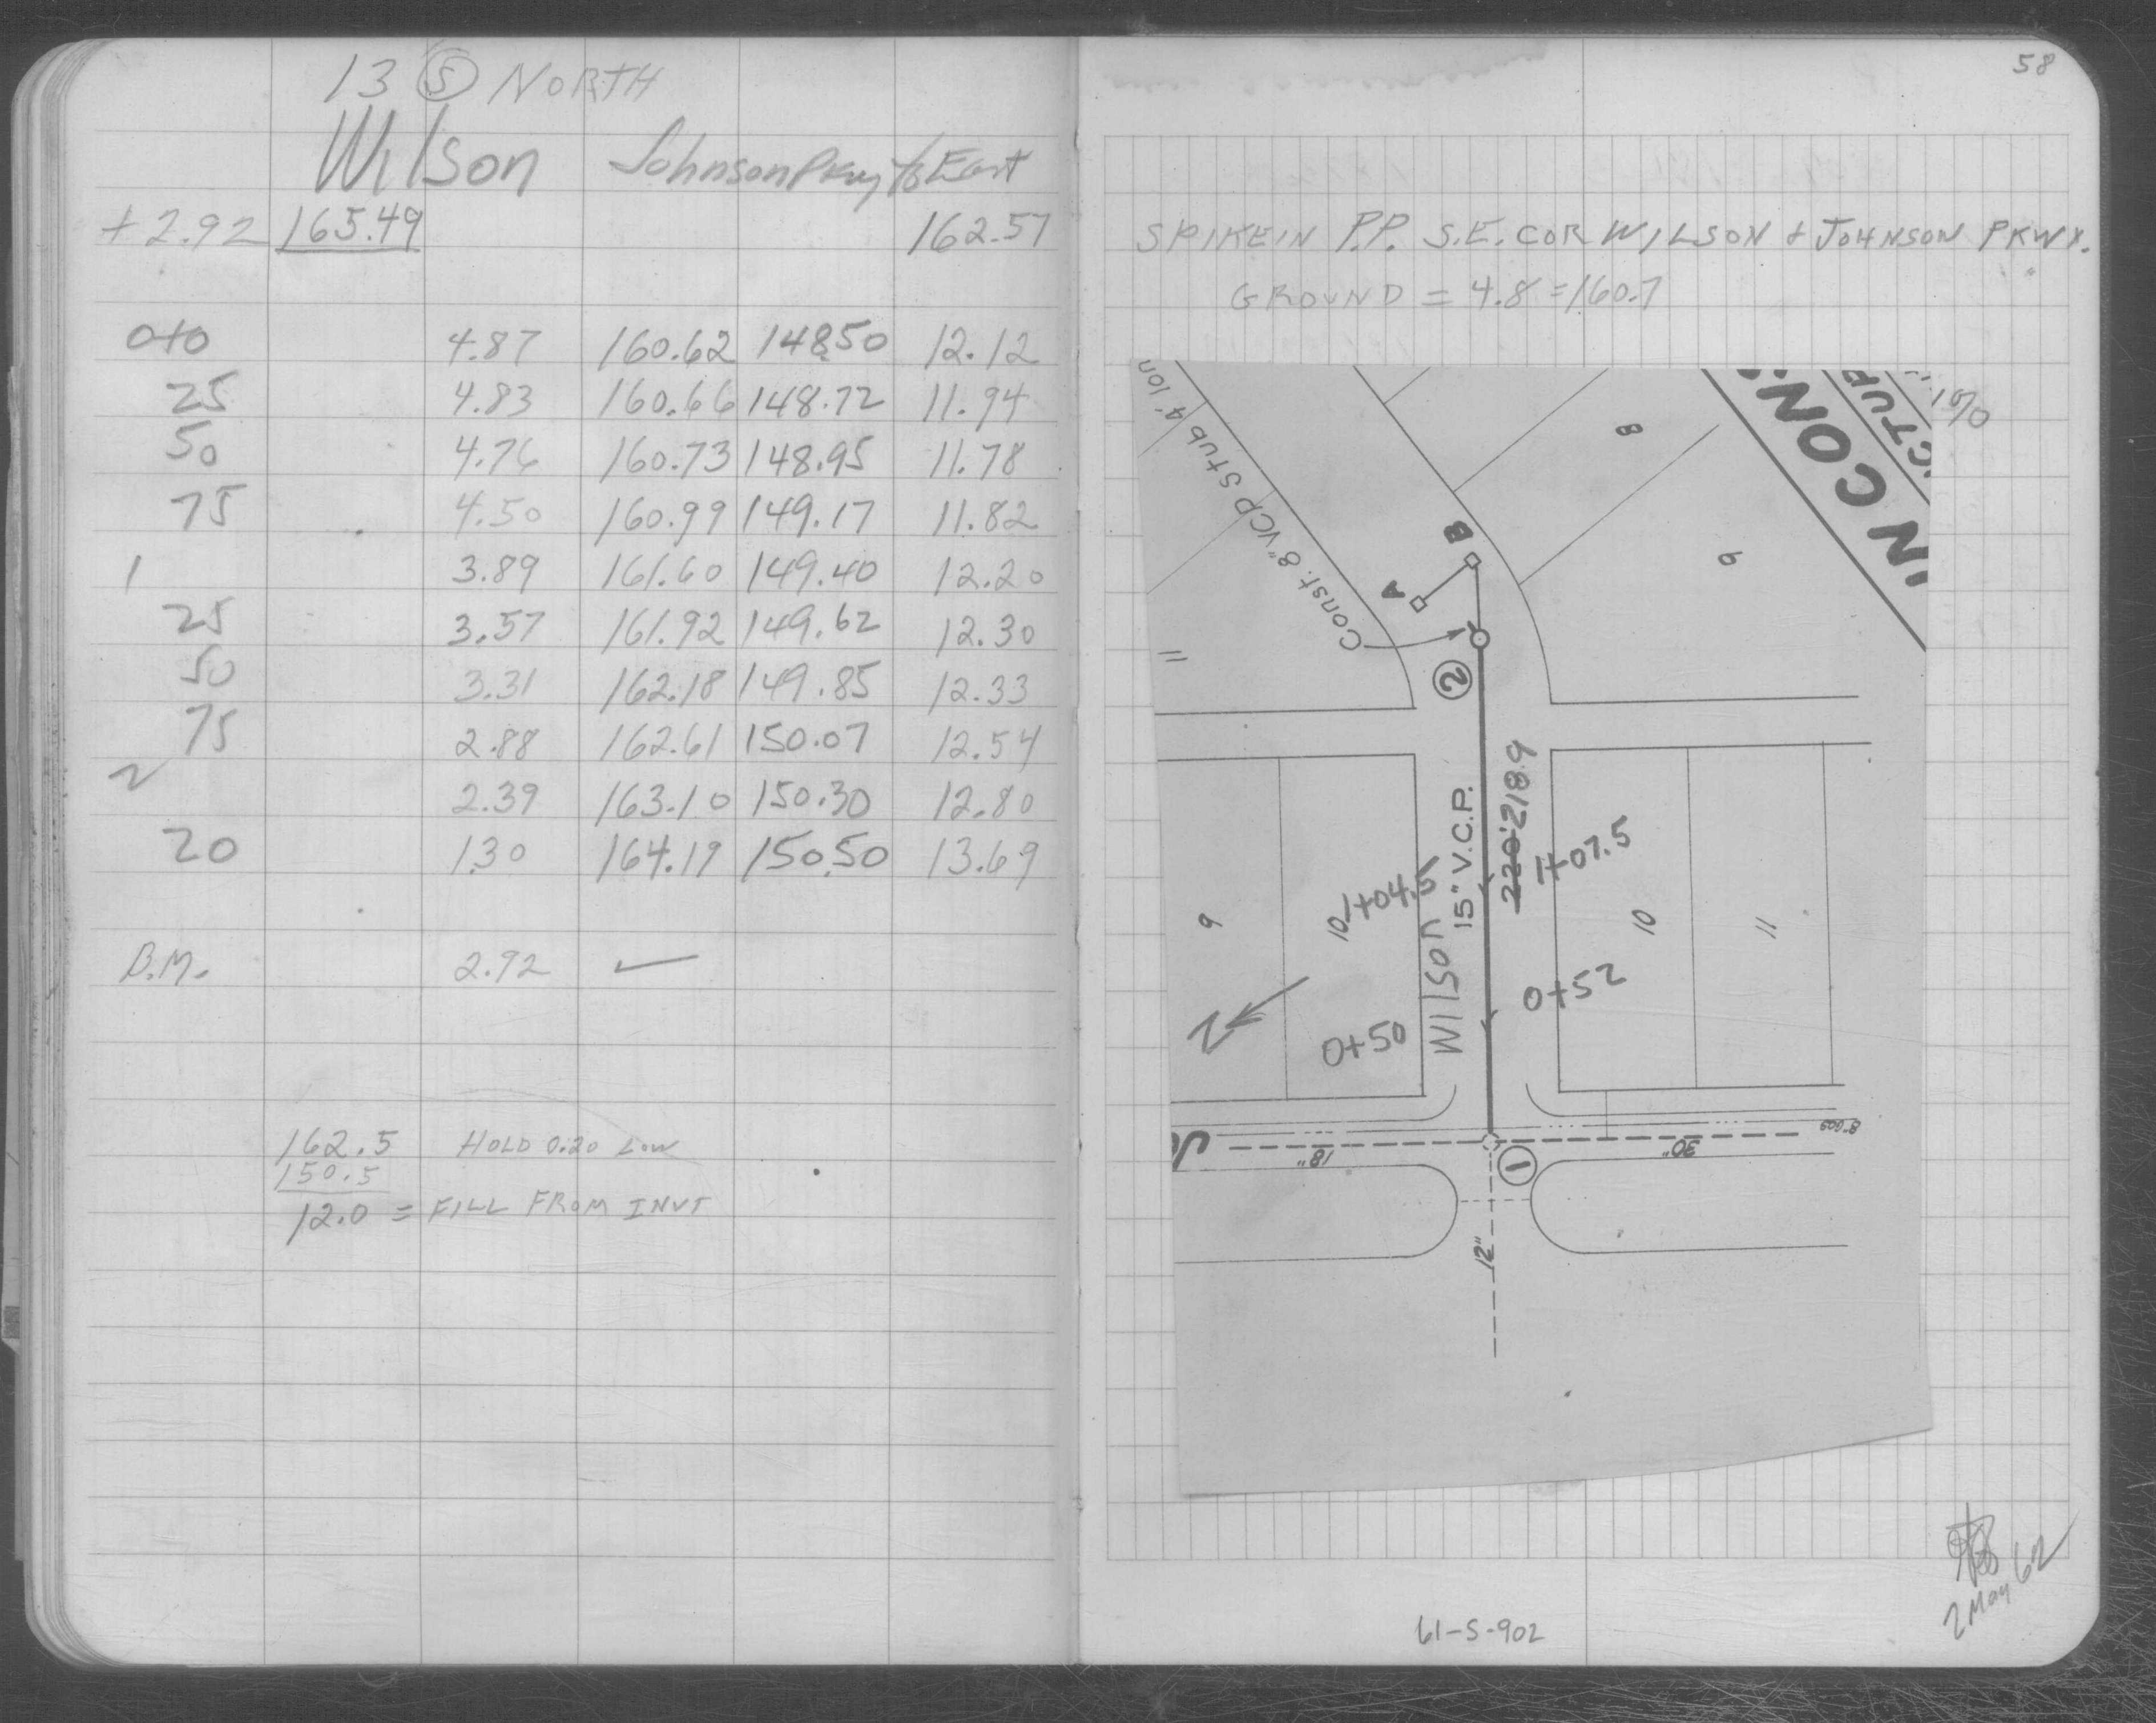 13 (S) NORTH
Wilson Johnson Pkwy to East
+2.92 165.49 162.57
0+0 4.87 160.62 148.50 12.12
25 4.83 160.66 148.72 11.94
50 4.76 160.73 148.95 11.78
75 4.50 160.99 149.17 11.82
1 3.89 161.60 149.40 12.20
25 3.57 161.92 149.62 12.30
50 3.31 162.18 149.85 12.33
75 2.88 162.61 150.07 12.54
2 2.39 163.10 150.30 12.80
20 1.30 164.19 150.50 13.69
B.M. 2.92 ✓
162.5 HOLD 0.20 LOW
150.5
12.0 = FILL FROM INVT
58
SPIKE IN P.P. S.E. COR WILSON & JOHNSON PKWY.
GROUND = 4.8 = 160.7
IN CON
Const. 8" VCP Stub 4' lon
8
9
B
A
11
2
15" V.C.P.
220' 218.9
1+07.5
1+04.5
Wilson
9
10
10
11
0+52
0+50
N
Jo
18"
30"
8" GAS
1
12"
61-S-902
2 May 62